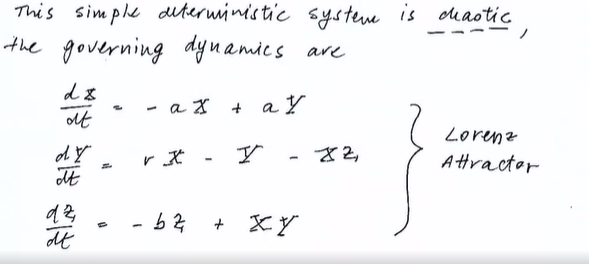 This simple deterministic system is chaotic,
the governing dynamics are
dX/dt = - aX + aY
dY/dt = rX - Y - XZ
dZ/dt = - bZ + XY
Lorenz
Attractor